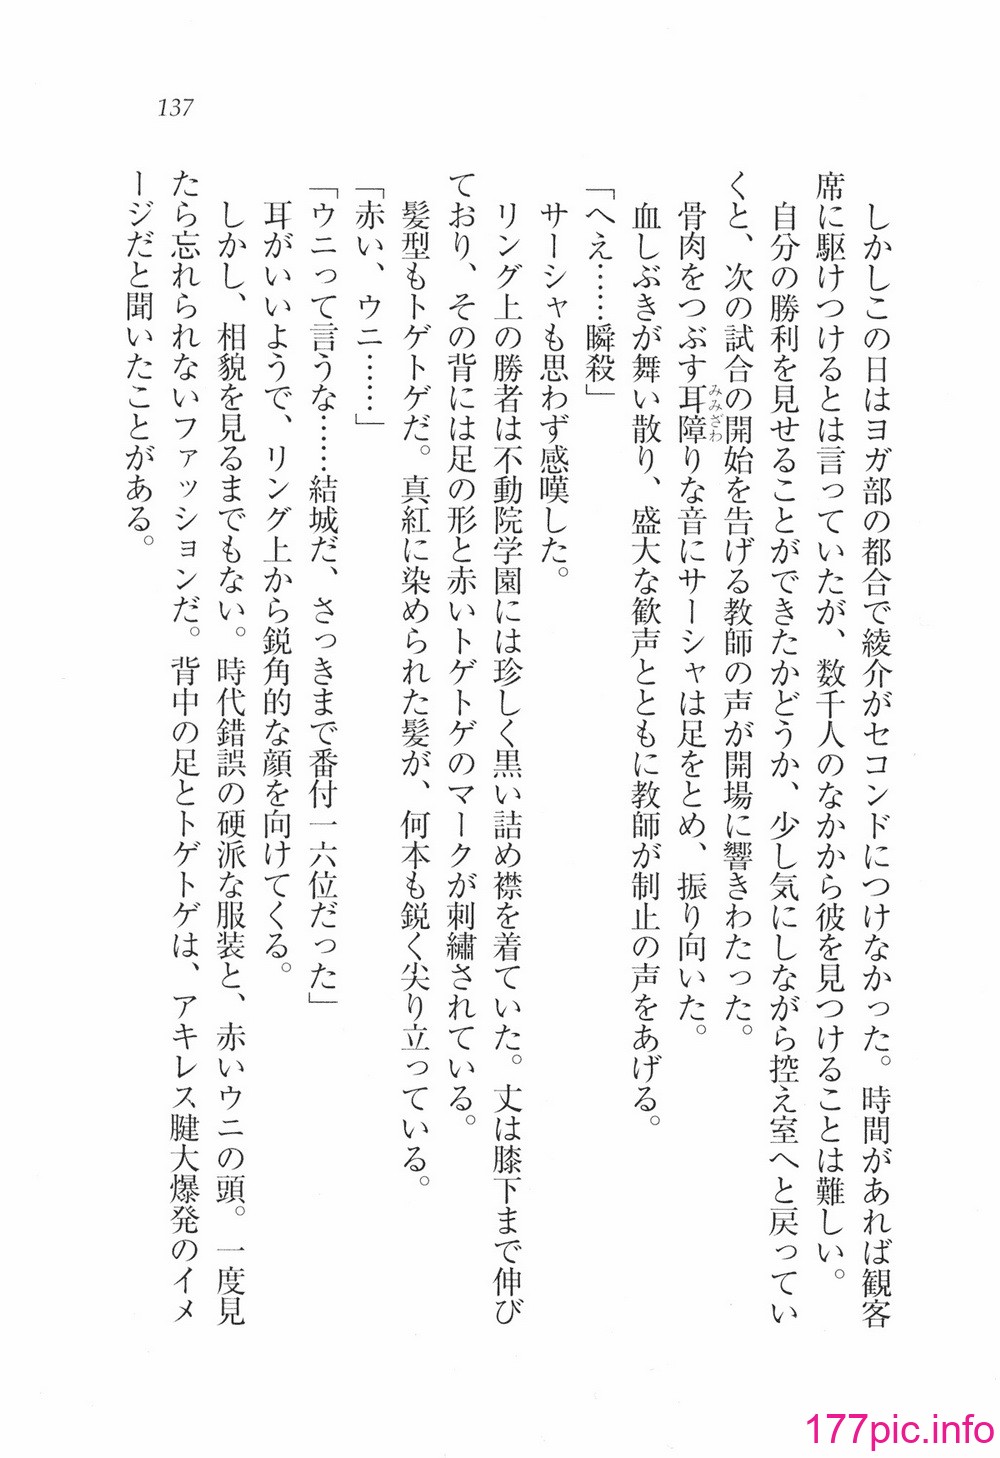 137
しかしこの日はヨガ部の都合で綾介がセコンドにつけなかった。時間があれば観客
席に駆けつけるとは言っていたが、数千人のなかから彼を見つけることは難しい。
自分の勝利を見せることができたかどうか、少し気にしながら控え室へと戻ってい
くと、次の試合の開始を告げる教師の声が開場に響きわたった。
骨肉をつぶす耳障りな音にサーシャは足をとめ、振り向いた。
みみざわ
血しぶきが舞い散り、盛大な歓声とともに教師が制止の声をあげる。
「へえ……瞬殺」
サーシャも思わず感嘆した。
リング上の勝者は不動院学園には珍しく黒い詰め襟を着ていた。丈は膝下まで伸び
ており、その背には足の形と赤いトゲトゲのマークが刺繡されている。
髪型もトゲトゲだ。真紅に染められた髪が、何本も鋭く尖り立っている。
「赤い、ウニ……」
「ウニって言うな……結城だ、さっきまで番付一六位だった」
耳がいいようで、リング上から鋭角的な顔を向けてくる。
しかし、相貌を見るまでもない。時代錯誤の硬派な服装と、赤いウニの頭。一度見
たら忘れられないファッションだ。背中の足とトゲトゲは、アキレス腱大爆発のイメ
ージだと聞いたことがある。
177pic.info